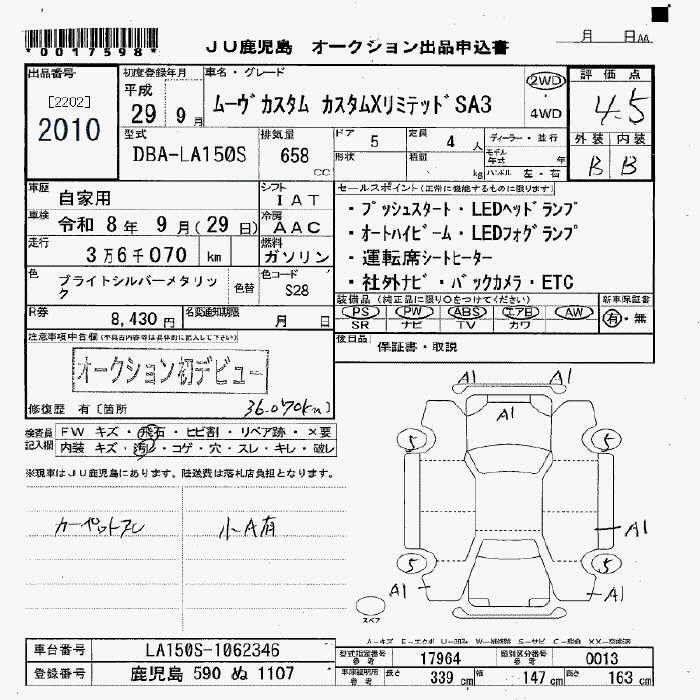 *0017598*
JU鹿児島 オークション出品申込書
月 日AA
出品番号
[2202]
2010
初度登録年月
平成
29 9月
車名・グレード
ムーヴカスタム カスタムXリミテッドSA3
2WD
・
4WD
評価点
4.5
外装 内装
B B
型式
DBA-LA150S
排気量
658
CC
ドア 5
定員 4 人
形状
積載 kg
ディーラー・並行
モデル年式 年
ハンドル 左・右
車歴
自家用
シフト
IAT
車検
令和 8年 9月(29日)
冷房
AAC
走行
3万6千070 km
燃料
ガソリン
色
ブライトシルバーメタリック
色替
色コード
S28
R券
8,430円
名変通知期限
月 日
セールスポイント(正常に機能するものに限ります)
・プッシュスタート・LEDヘッドランプ
・オートハイビーム・LEDフォグランプ
・運転席シートヒーター
・社外ナビ・バックカメラ・ETC
装備品(純正品に限り○をつけてください)
PS PW ABS エアB AW
SR ナビ TV カワ
新車保証書
有・無
後日品
保証書・取説
注意事項申告欄(不具合内容等は具体的に記入して下さい)
オークション初デビュー
修復歴 有[箇所
36.070km]
検査員記入欄
FW キズ・飛石・ヒビ割・リペア跡・×要
内装 キズ・汚れ・コゲ・穴・スレ・キレ・破レ
※現車はJU鹿児島にあります。陸送費は落札店負担となります。
小A有
A1 A1
A1
5 5
A1
5 5
A1 A1
スペア
車台番号
LA150S-1062346
登録番号
鹿児島 590 ぬ 1107
型式指定番号
参考
17964
類別区分番号
参考
0013
車庫証明用
参考
長さ 339 cm
幅 147 cm
高さ 163 cm